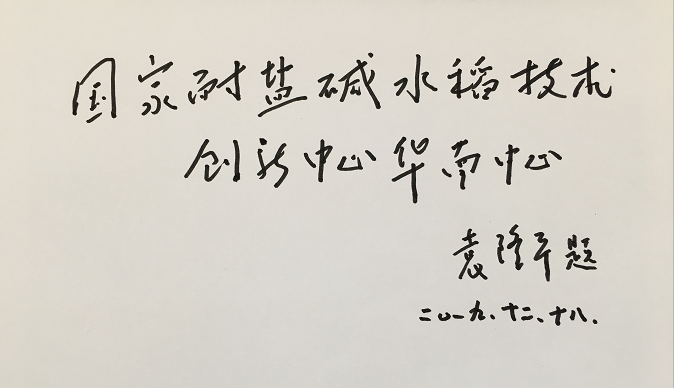 国家耐盐碱水稻技术
创新中心华南中心
袁隆平题
二〇一九、十二、十八.